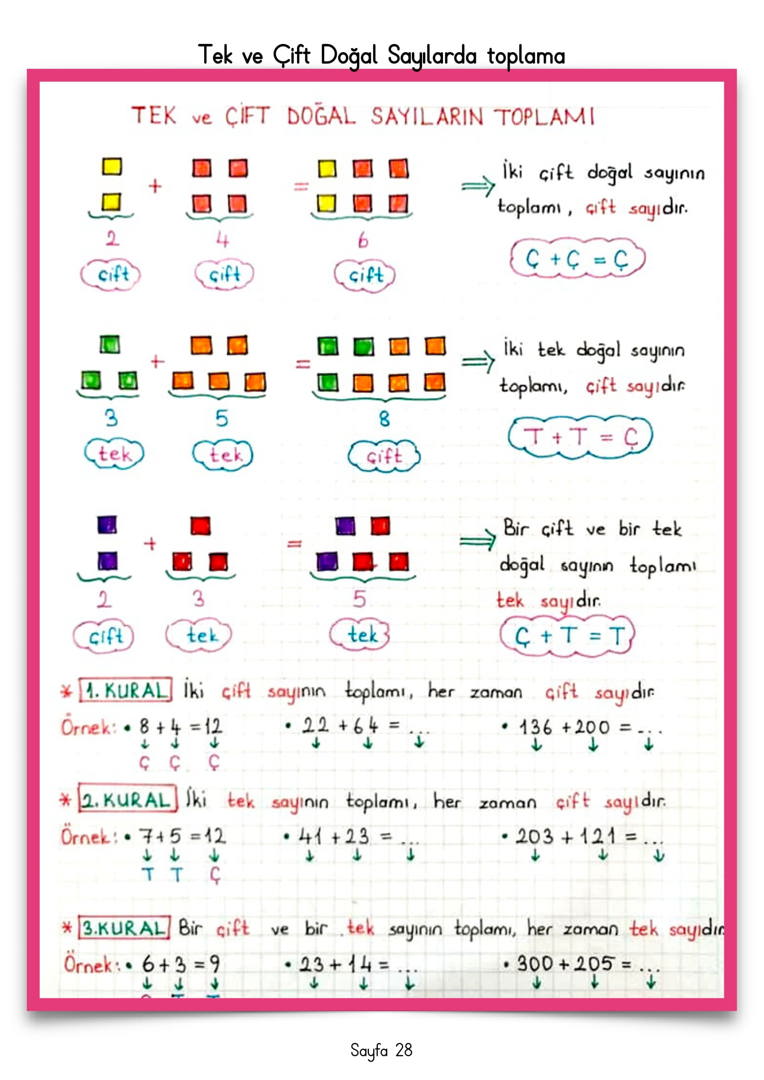 Tek ve Çift Doğal Sayılarda toplama
TEK ve ÇİFT DOĞAL SAYILARIN TOPLAMI
+ = ⇒ İki çift doğal sayının
toplamı, çift sayıdır.
2 4 6
çift çift çift
Ç + Ç = Ç
+ = ⇒ İki tek doğal sayının
toplamı, çift sayıdır
3 5 8
tek tek çift
T + T = Ç
+ = ⇒ Bir çift ve bir tek
doğal sayının toplamı
2 3 5
tek sayıdır.
çift tek tek
Ç + T = T
* 1. KURAL İki çift sayının toplamı, her zaman çift sayıdır
Örnek: • 8 + 4 = 12 • 22 + 64 = ... • 136 + 200 = ...
↓ ↓ ↓ ↓ ↓ ↓ ↓ ↓ ↓
Ç Ç Ç
* 2. KURAL İki tek sayının toplamı, her zaman çift sayıdır.
Örnek: • 7+5 = 12 • 41 + 23 = ... • 203 + 121 = ...
↓ ↓ ↓ ↓ ↓ ↓ ↓ ↓ ↓
T T Ç
* 3.KURAL Bir çift ve bir tek sayının toplamı, her zaman tek sayıdır
Örnek: • 6+3 = 9 • 23 + 14 = ... • 300 + 205 = ...
↓ ↓ ↓ ↓ ↓ ↓ ↓ ↓ ↓
Sayfa 28